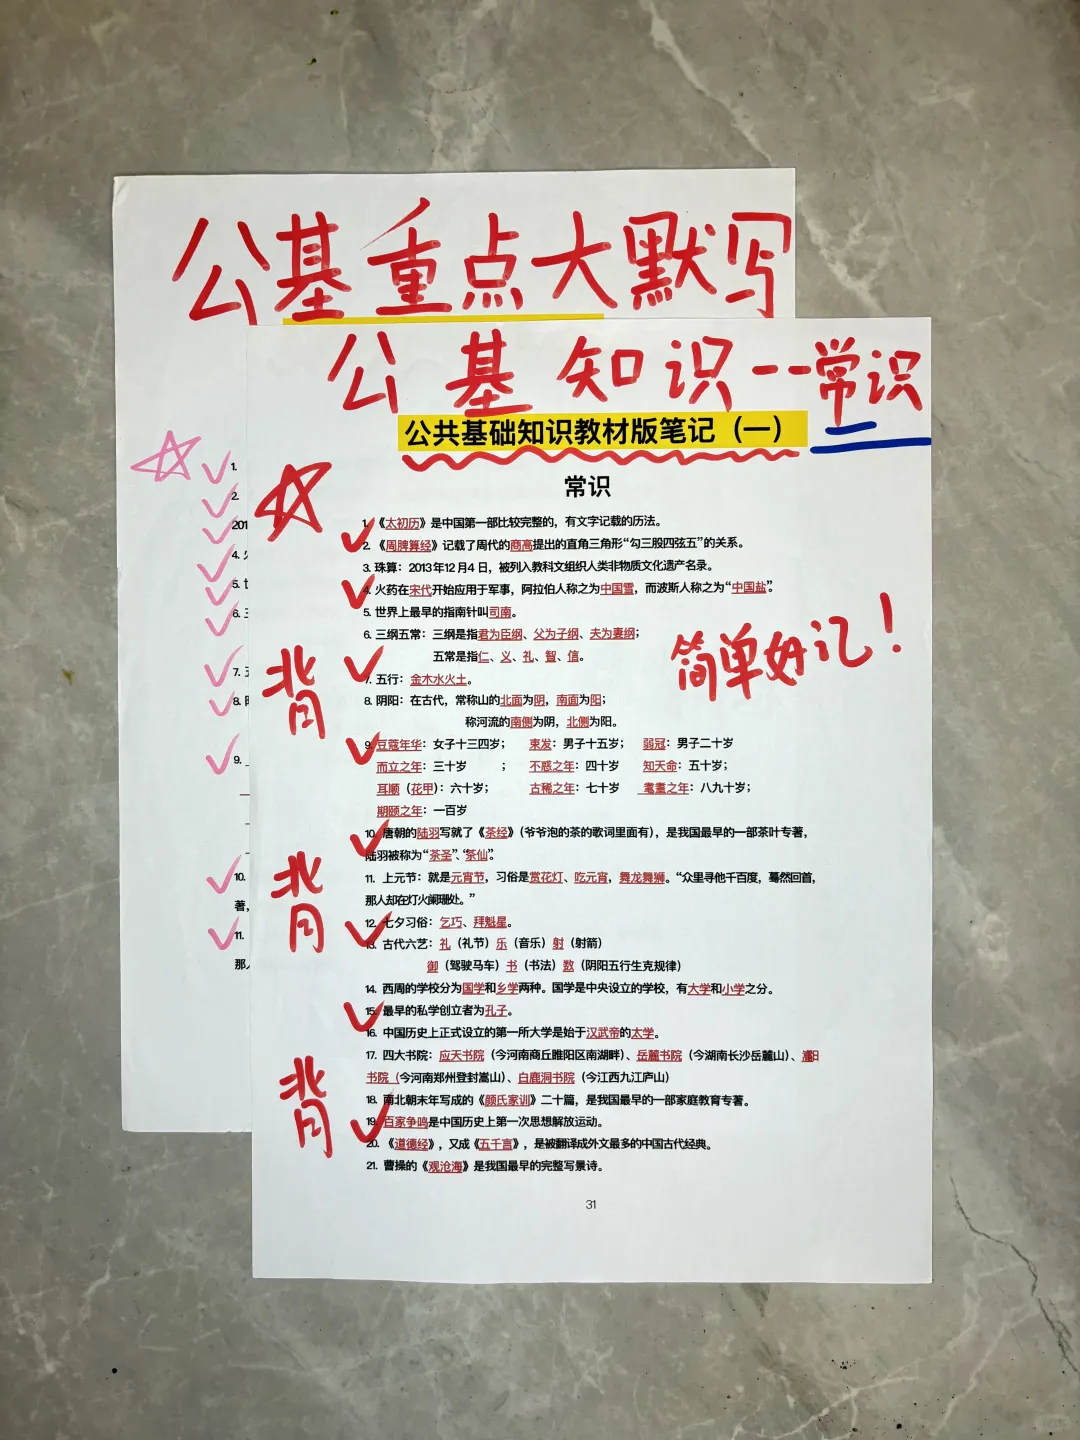 公基重点大默写
公基知识--常识
公共基础知识教材版笔记（一）
常识
1. 《太初历》是中国第一部比较完整的，有文字记载的历法。
2. 《周脾算经》记载了周代的商高提出的直角三角形“勾三股四弦五”的关系。
3. 珠算：2013年12月4日，被列入教科文组织人类非物质文化遗产名录。
4. 火药在宋代开始应用于军事，阿拉伯人称之为中国雪，而波斯人称之为“中国盐”。
5. 世界上最早的指南针叫司南。
6. 三纲五常：三纲是指君为臣纲、父为子纲、夫为妻纲；
五常是指仁、义、礼、智、信。
简单好记！
背
7. 五行：金木水火土。
8. 阴阳：在古代，常称山的北面为阴，南面为阳；
称河流的南侧为阴，北侧为阳。
9. 豆蔻年华：女子十三四岁； 束发：男子十五岁； 弱冠：男子二十岁
而立之年：三十岁 ； 不惑之年：四十岁 知天命：五十岁；
耳顺（花甲）：六十岁； 古稀之年：七十岁 耄耋之年：八九十岁；
期颐之年：一百岁
10. 唐朝的陆羽写就了《茶经》（爷爷泡的茶的歌词里面有），是我国最早的一部茶叶专著，
陆羽被称为“茶圣”、“茶仙”。
背
11. 上元节：就是元宵节，习俗是赏花灯、吃元宵，舞龙舞狮。“众里寻他千百度，蓦然回首，
那人却在灯火阑珊处。”
12. 七夕习俗：乞巧、拜魁星。
13. 古代六艺：礼（礼节）乐（音乐）射（射箭）
御（驾驶马车）书（书法）数（阴阳五行生克规律）
14. 西周的学校分为国学和乡学两种。国学是中央设立的学校，有大学和小学之分。
15. 最早的私学创立者为孔子。
16. 中国历史上正式设立的第一所大学是始于汉武帝的太学。
17. 四大书院：应天书院（今河南商丘睢阳区南湖畔）、岳麓书院（今湖南长沙岳麓山）、
书院（今河南郑州登封嵩山）、白鹿洞书院（今江西九江庐山）
背
18. 南北朝末年写成的《颜氏家训》二十篇，是我国最早的一部家庭教育专著。
19. 百家争鸣是中国历史上第一次思想解放运动。
20. 《道德经》，又成《五千言》，是被翻译成外文最多的中国古代经典。
21. 曹操的《观沧海》是我国最早的完整写景诗。
31
1.
2.
201
4.
5.
6.
7.
8.
9.
10.
著，
11.
那